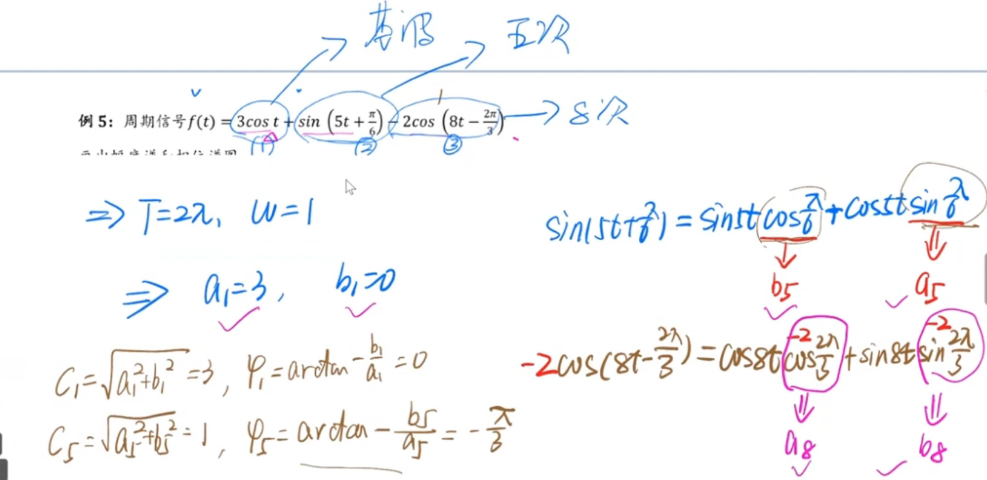 基波
五次
例 5：周期信号f(t) = 3cos t + sin (5t + π/6) - 2cos (8t - 2π/3)
→ 8次
① ② ③
⇒ T=2π, ω=1
⇒ a₁=3, b₁=0
C₁=√(a₁²+b₁²)=3, φ₁=arctan-b₁/a₁=0
C₅=√(a₅²+b₅²)=1, φ₅=arctan-b₅/a₅=-π/3
sin(5t+π/6)=sin5tcosπ/6+cos5tsinπ/6
b₅ a₅
-2cos(8t-2π/3)=cos8t -2cos2π/3+sin8t -2sin2π/3
a₈ b₈